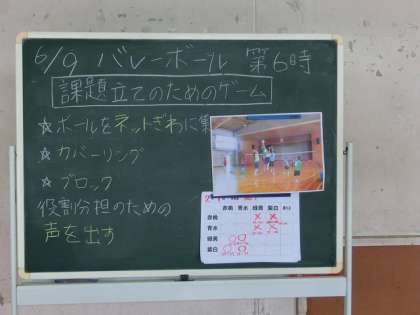 6/9 バレーボール 第6時
課題立てのためのゲーム
☆ボールをネットぎわに集
☆カバーリング
☆ブロック
役割分担のための
声を出す
赤桃 青水 緑黄 紫白
赤桃 × ×
青水 × ×
緑黄 ○ ○
紫白 ○ ○